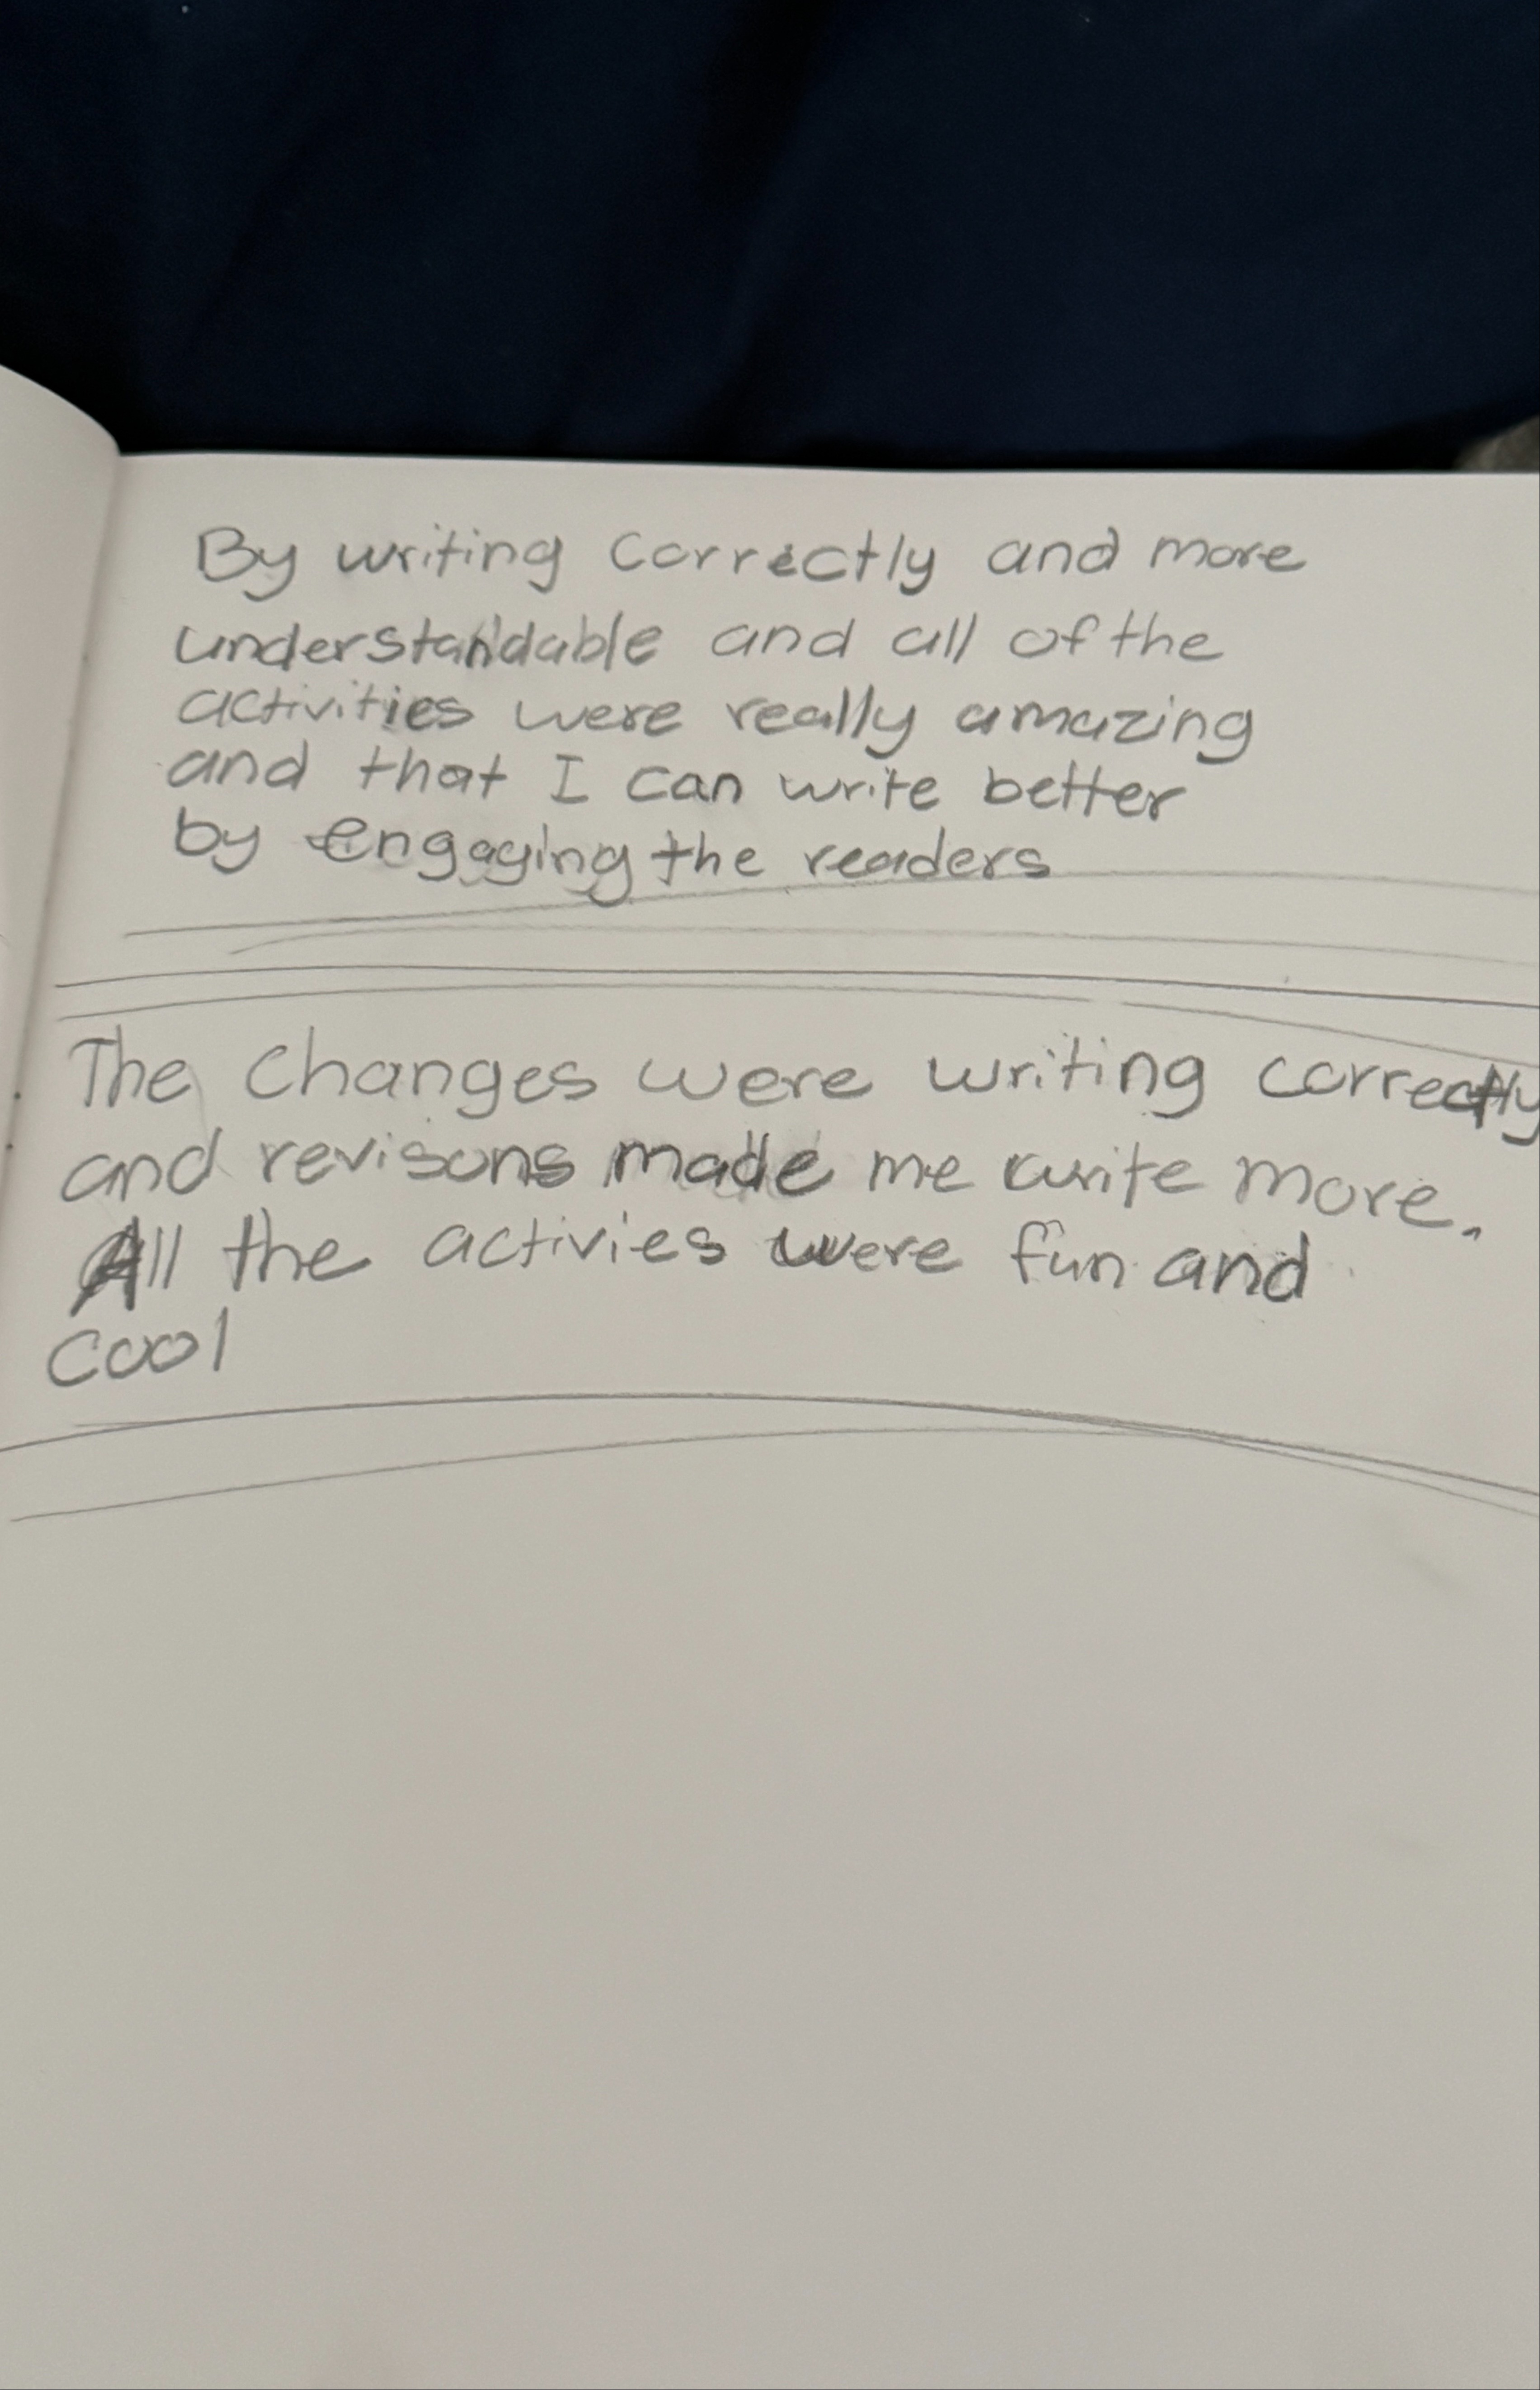 By writing correctly and more
understandable and all of the
activities were really amazing
and that I can write better
by engaging the readers
The changes were writing correctly
and revisons made me write more.
All the activies were fun and
cool